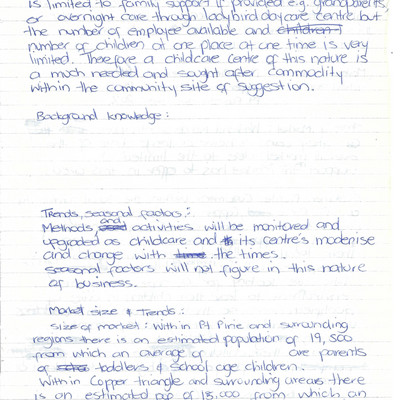 is limited to family support if provided e.g. grandparents,
or overnight care through ladybird daycare centre but
the number of employee available and children
number of children at one place at one time is very
limited. Therefore a childcare centre of this nature is
a much needed and sought after commodity
within the community site of suggestion.
Background knowledge:
Trends, seasonal factors:
Methods and activities will be monitored and
upgraded as childcare and its centre's modernise
and change with the times.
seasonal factors will not figure in this nature
of business.
Market size & Trends:
Size of market: Within Pt Pirie and surrounding
regions there is an estimated population of 19,500
from which an average of are parents
of toddlers & school age children.
Within Copper triangle and surrounding areas there
is an estimated pop of 13,000 from which an